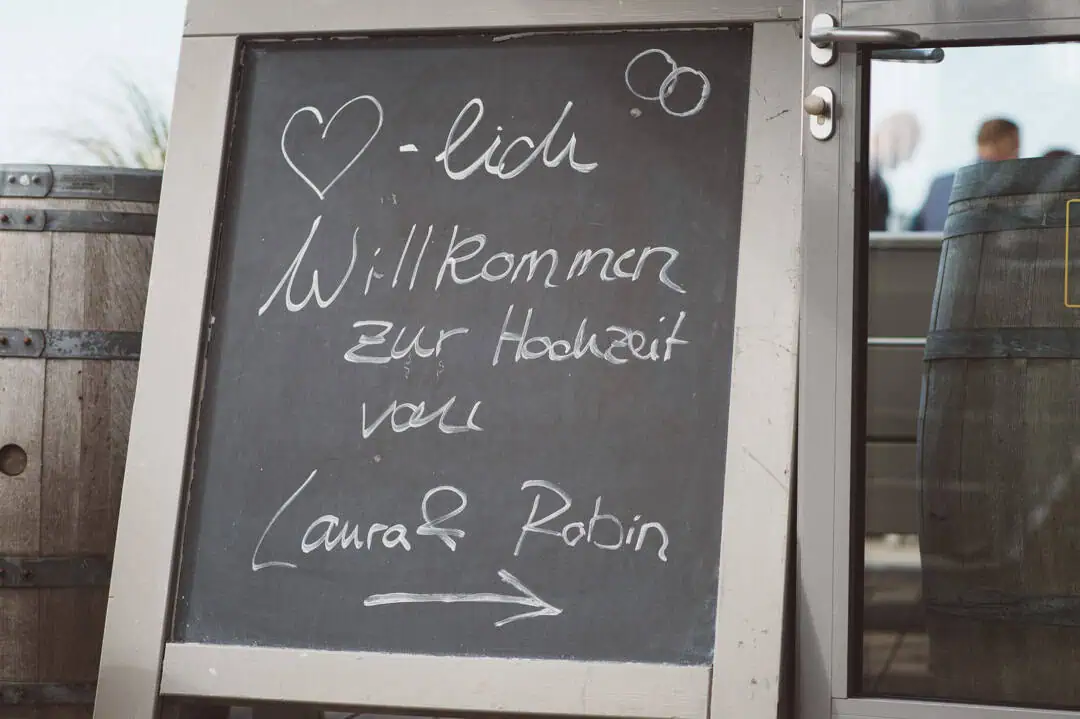 ♡-lich
Willkommen
zur Hochzeit
von
Laura & Robin
→